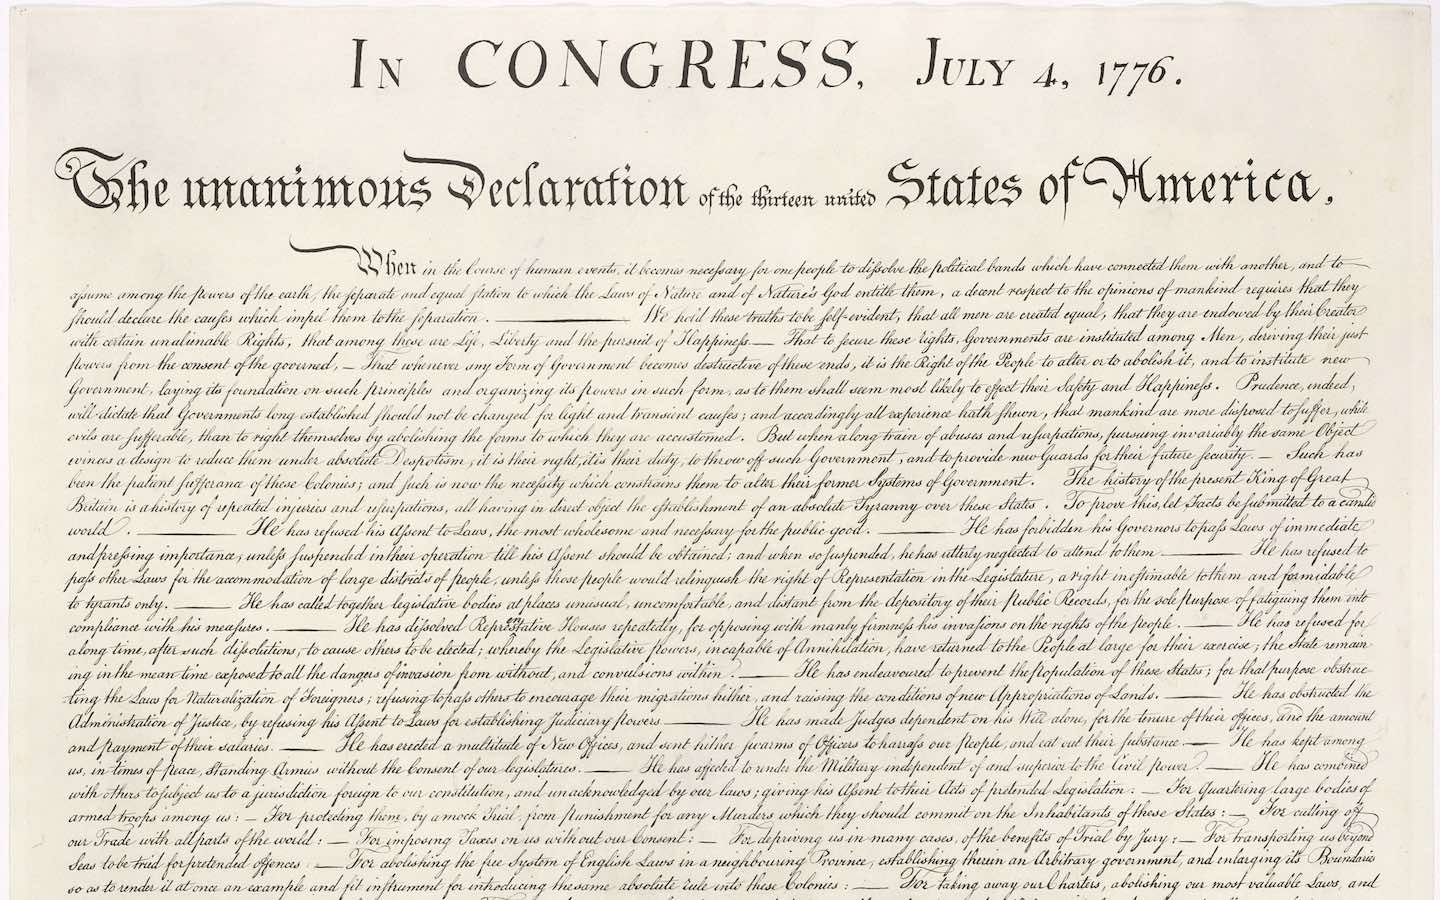 In CONGRESS, July 4, 1776.
The unanimous Declaration of the thirteen united States of America,
When in the Course of human events, it becomes necessary for one people to dissolve the political bands which have connected them with another, and to
assume among the powers of the earth, the separate and equal station to which the Laws of Nature and of Nature's God entitle them, a decent respect to the opinions of mankind requires that they
should declare the causes which impel them to the separation. — We hold these truths to be self-evident, that all men are created equal, that they are endowed by their Creator
with certain unalienable Rights, that among these are Life, Liberty and the pursuit of Happiness — That to secure these rights, Governments are instituted among Men, deriving their just
powers from the consent of the governed, — That whenever any Form of Government becomes destructive of these ends, it is the Right of the People to alter or to abolish it, and to institute new
Government, laying its foundation on such principles and organizing its powers in such form, as to them shall seem most likely to effect their Safety and Happiness. Prudence, indeed,
will dictate that Governments long established should not be changed for light and transient causes; and accordingly all experience hath shewn, that mankind are more disposed to suffer, while
evils are sufferable, than to right themselves by abolishing the forms to which they are accustomed. But when a long train of abuses and usurpations, pursuing invariably the same Object
evinces a design to reduce them under absolute Despotism, it is their right, it is their duty, to throw off such Government, and to provide new Guards for their future security. — Such has
been the patient sufferance of these Colonies; and such is now the necessity which constrains them to alter their former Systems of Government. The history of the present King of Great
Britain is a history of repeated injuries and usurpations, all having in direct object the establishment of an absolute Tyranny over these States. To prove this, let Facts be submitted to a candid
world. — He has refused his Assent to Laws, the most wholesome and necessary for the public good. — He has forbidden his Governors to pass Laws of immediate
and pressing importance, unless suspended in their operation till his Assent should be obtained; and when so suspended, he has utterly neglected to attend to them — He has refused to
pass other Laws for the accommodation of large districts of people, unless those people would relinquish the right of Representation in the Legislature, a right inestimable to them and formidable
to tyrants only. — He has called together legislative bodies at places unusual, uncomfortable, and distant from the depository of their Public Records, for the sole purpose of fatiguing them into
compliance with his measures. — He has dissolved Representative Houses repeatedly, for opposing with manly firmness his invasions on the rights of the people. — He has refused for
a long time, after such dissolutions, to cause others to be elected; whereby the Legislative powers, incapable of Annihilation, have returned to the People at large for their exercise; the State remain-
ing in the mean time exposed to all the dangers of invasion from without, and convulsions within. — He has endeavoured to prevent the population of these States; for that purpose obstruc-
ting the Laws for Naturalization of Foreigners; refusing to pass others to encourage their migrations hither, and raising the conditions of new Appropriations of Lands. — He has obstructed the
Administration of Justice, by refusing his Assent to Laws for establishing Judiciary powers — He has made Judges dependent on his Will alone, for the tenure of their offices, and the amount
and payment of their salaries. — He has erected a multitude of New Offices, and sent hither swarms of Officers to harrass our people, and eat out their substance — He has kept among
us, in times of peace, Standing Armies without the Consent of our legislatures. — He has affected to render the Military independent of and superior to the Civil power. — He has combined
with others to subject us to a jurisdiction foreign to our constitution, and unacknowledged by our laws; giving his Assent to their Acts of pretended Legislation: — For Quartering large bodies of
armed troops among us: — For protecting them, by a mock Trial, from punishment for any Murders which they should commit on the Inhabitants of these States: — For cutting off
our Trade with all parts of the world: — For imposing Taxes on us without our Consent: — For depriving us in many cases, of the benefits of Trial by Jury: — For transporting us beyond
Seas to be tried for pretended offences — For abolishing the free System of English Laws in a neighbouring Province, establishing therein an Arbitrary government, and enlarging its Boundaries
so as to render it at once an example and fit instrument for introducing the same absolute rule into these Colonies: — For taking away our Charters, abolishing our most valuable Laws, and